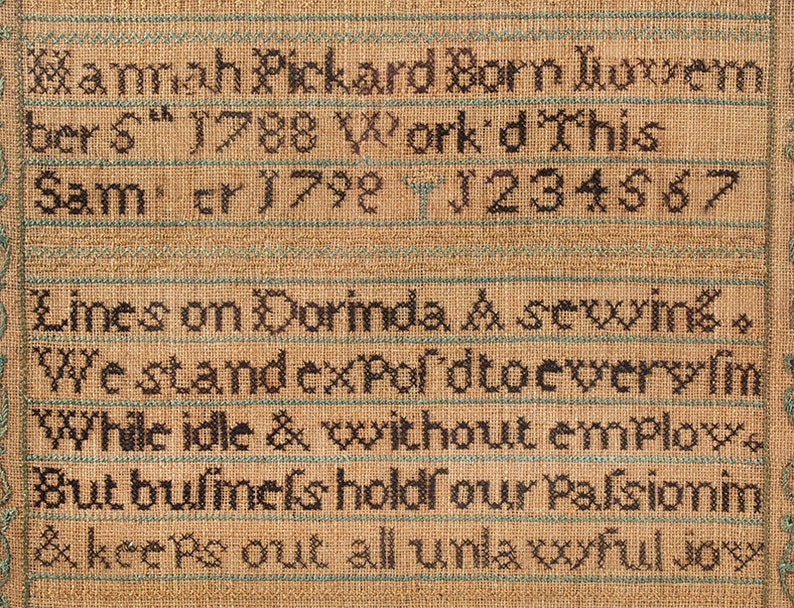 Hannah Pickard Born Novem
ber 5th 1788 Work'd This
Sam er 1798 1234567
Lines on Dorinda A sewing.
We stand expoſ'd to every ſin
While idle & without employ.
But buſineſs holdſ our Paſsion in
& keeps out all unlawful joy